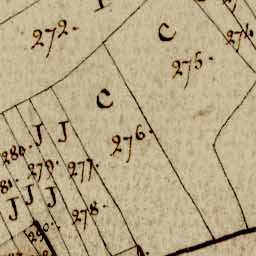 272.
C
275.
C
276.
J
J
280.
279.
277.
J
J
J
278.